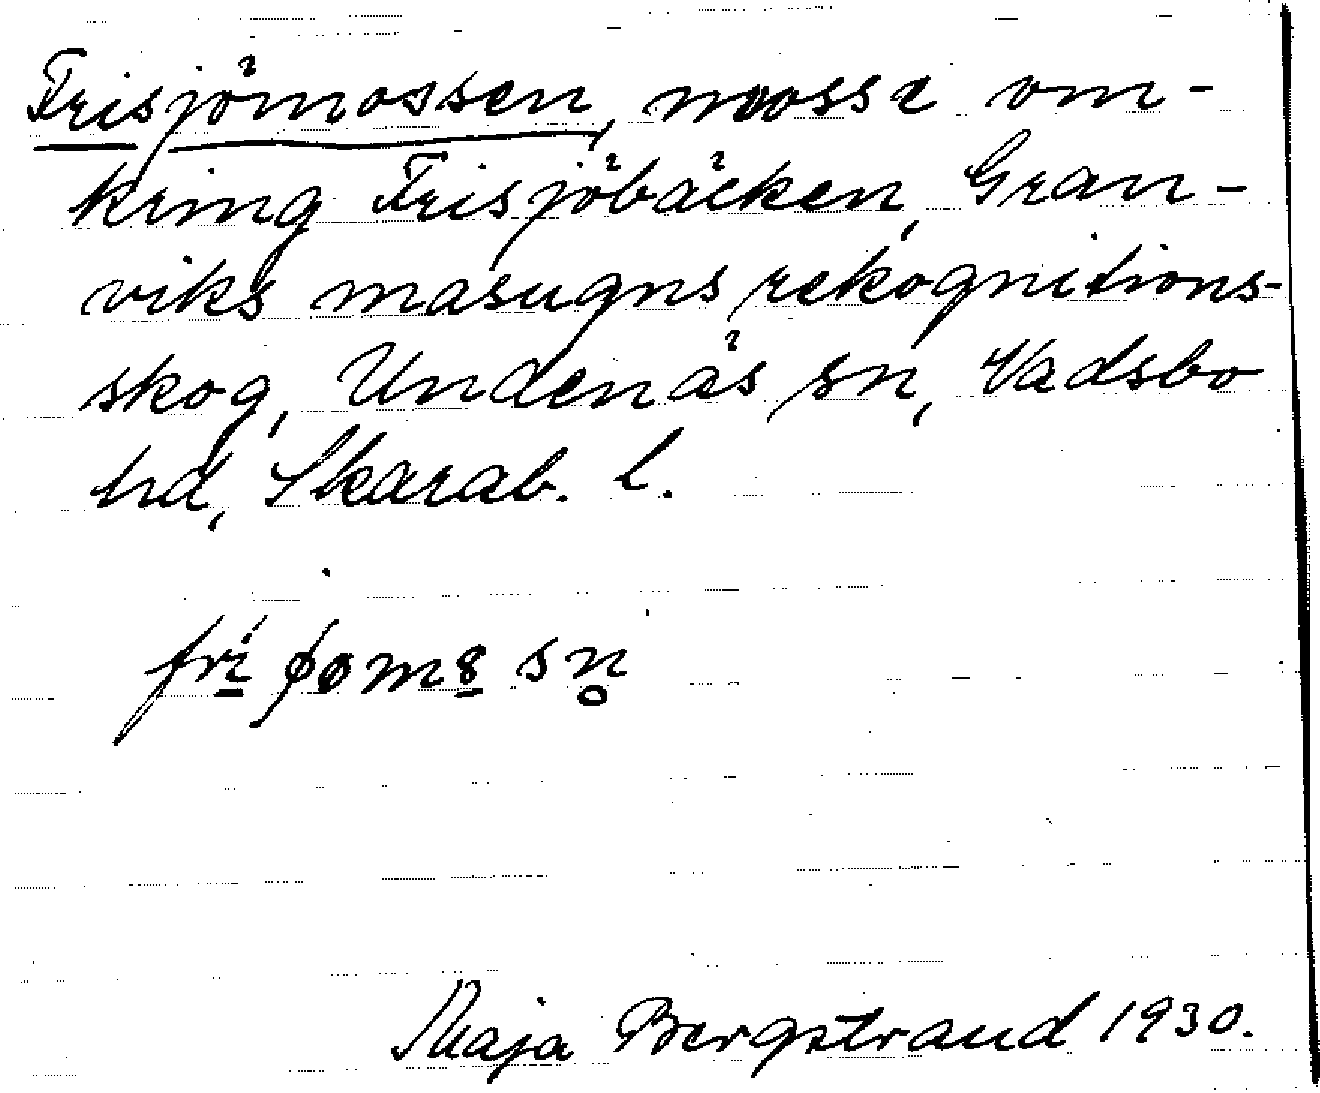 Frisjömossen, mosse om-
kring Frisjöbäcken, Gran-
viks masugns rekognitions-
skog, Undenäs sn, Vadsbo
hd, Skarab. l.
Maja Bergstrand 1930.